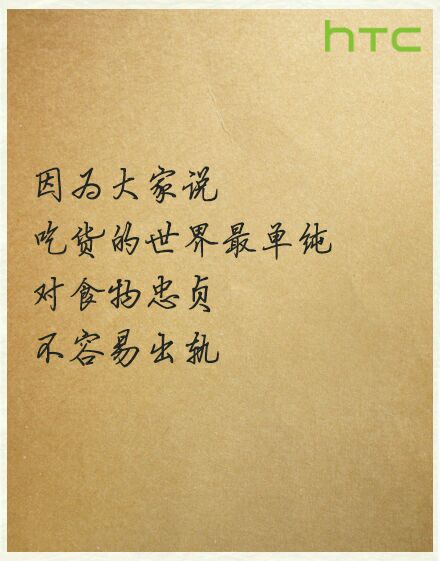 hTC
因为大家说
吃货的世界最单纯
对食物忠贞
不容易出轨